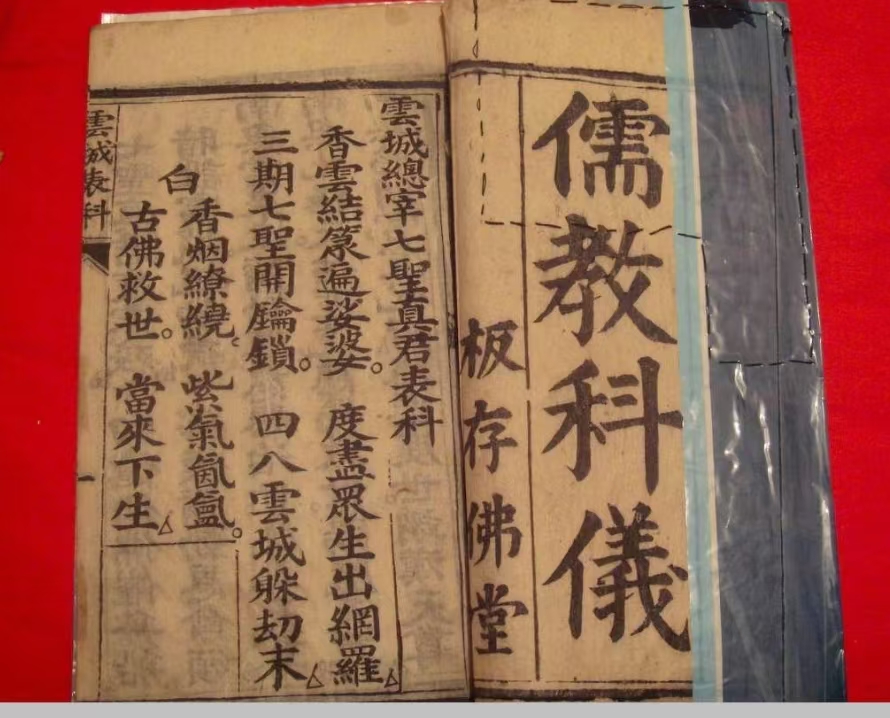 儒教科儀
板存佛堂
雲城總宰七聖真君表科
香雲結篆遍娑婆。 度盡眾生出網羅△
三期七聖開鑰鎖。 四八雲城躲刼末
白
香烟繚繞。 紫氣氤氳。
古佛救世。 當來下生△
雲城表科